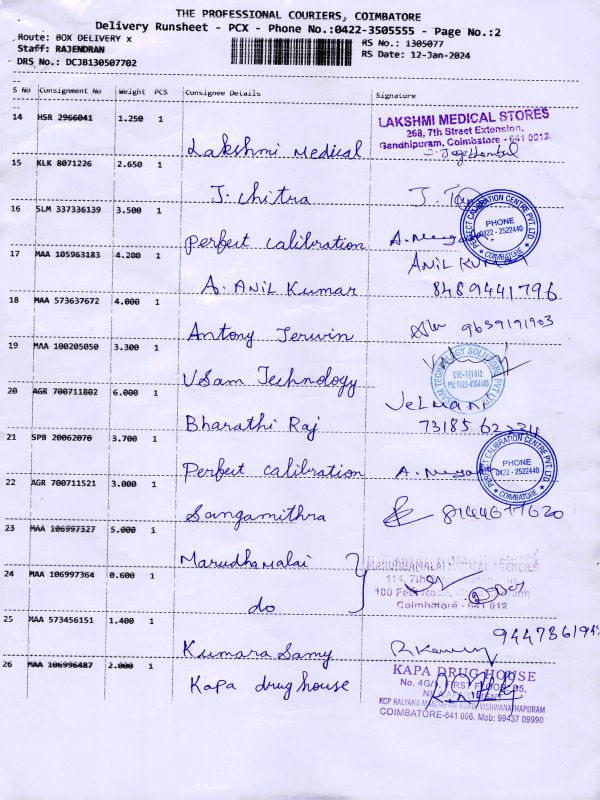 THE PROFESSIONAL COURIERS, COIMBATORE
Delivery Runsheet - PCX - Phone No.:0422-3505555 - Page No.:2
Route: BOX DELIVERY x
Staff: RAJENDRAN
DRS No.: DCJB130507702
RS No.: 1305077
RS Date: 12-Jan-2024
S No Consignment No Weight PCS Consignee Details Signature
14 HSR 2966041 1.250 1
Lakshmi Medical
LAKSHMI MEDICAL STORES
268, 7th Street Extension,
Gandhipuram, Coimbatore - 641 0012
15 KLK 8071226 2.650 1
J. Chitra
16 SLM 337336139 3.500 1
Perfect Calibration
PERFECT CALIBRATION CENTRE PVT LTD
PHONE
0422 - 2522440
COIMBATORE
17 MAA 105963183 4.200 1
A. ANIL Kumar
ANIL KUMAR
8489441796
18 MAA 573637672 4.000 1
Antony Jerwin
9659191903
19 MAA 100205050 3.300 1
VSam Technology
20 AGR 700711802 6.000 1
Bharathi Raj
VELMANI
21 SPB 20062070 3.700 1
Perfect Calibration
PERFECT CALIBRATION CENTRE PVT LTD
PHONE
0422 - 2522440
COIMBATORE
22 AGR 700711521 3.000 1
Sangamithra
23 MAA 106997327 5.000 1
Marudhamalai
24 MAA 106997364 0.600 1
do
MARUDHAMALAI MEDICAL AGENCIES
114, 7th
100 Feet Road,
Coimbatore - 641 012
25 MAA 573456151 1.400 1
Kumara Samy
26 MAA 106996487 2.000 1
Kapa drug house
KAPA DRUG HOUSE
No. 4G/1, FIRST FLOOR
KCP KALYANA MANDAPAM ROAD, VISHWANATHAPURAM
COIMBATORE-641 006. Mob: 99437 09990